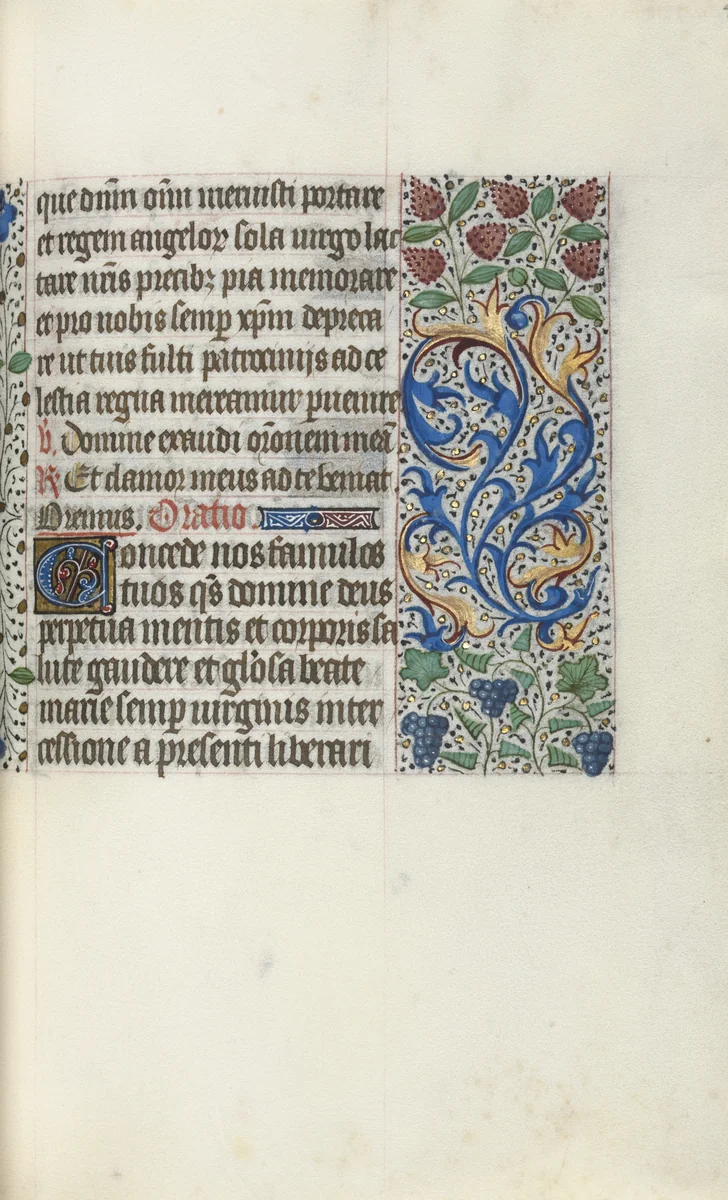 que dn̄m om̄i meruisti portare
et regem angeloꝝ sola uirgo lac
tare nr̄is precibꝫ pia memorare
et pro nobis semꝑ xp̄m depreca
re ut tuis fulti patrocinijs ad ce
lestia regna mereamur ꝑuenire
℣. Domine exaudi or̄onem meā
℟ Et clamor meus ad te veniat
Oremus. Oratio
Concede nos famulos
tuos qs̄ domine deus
perpetua mentis et corporis sa
lute gaudere et gl̄osa beate
marie semꝑ uirginis inter
cessione a presenti liberari